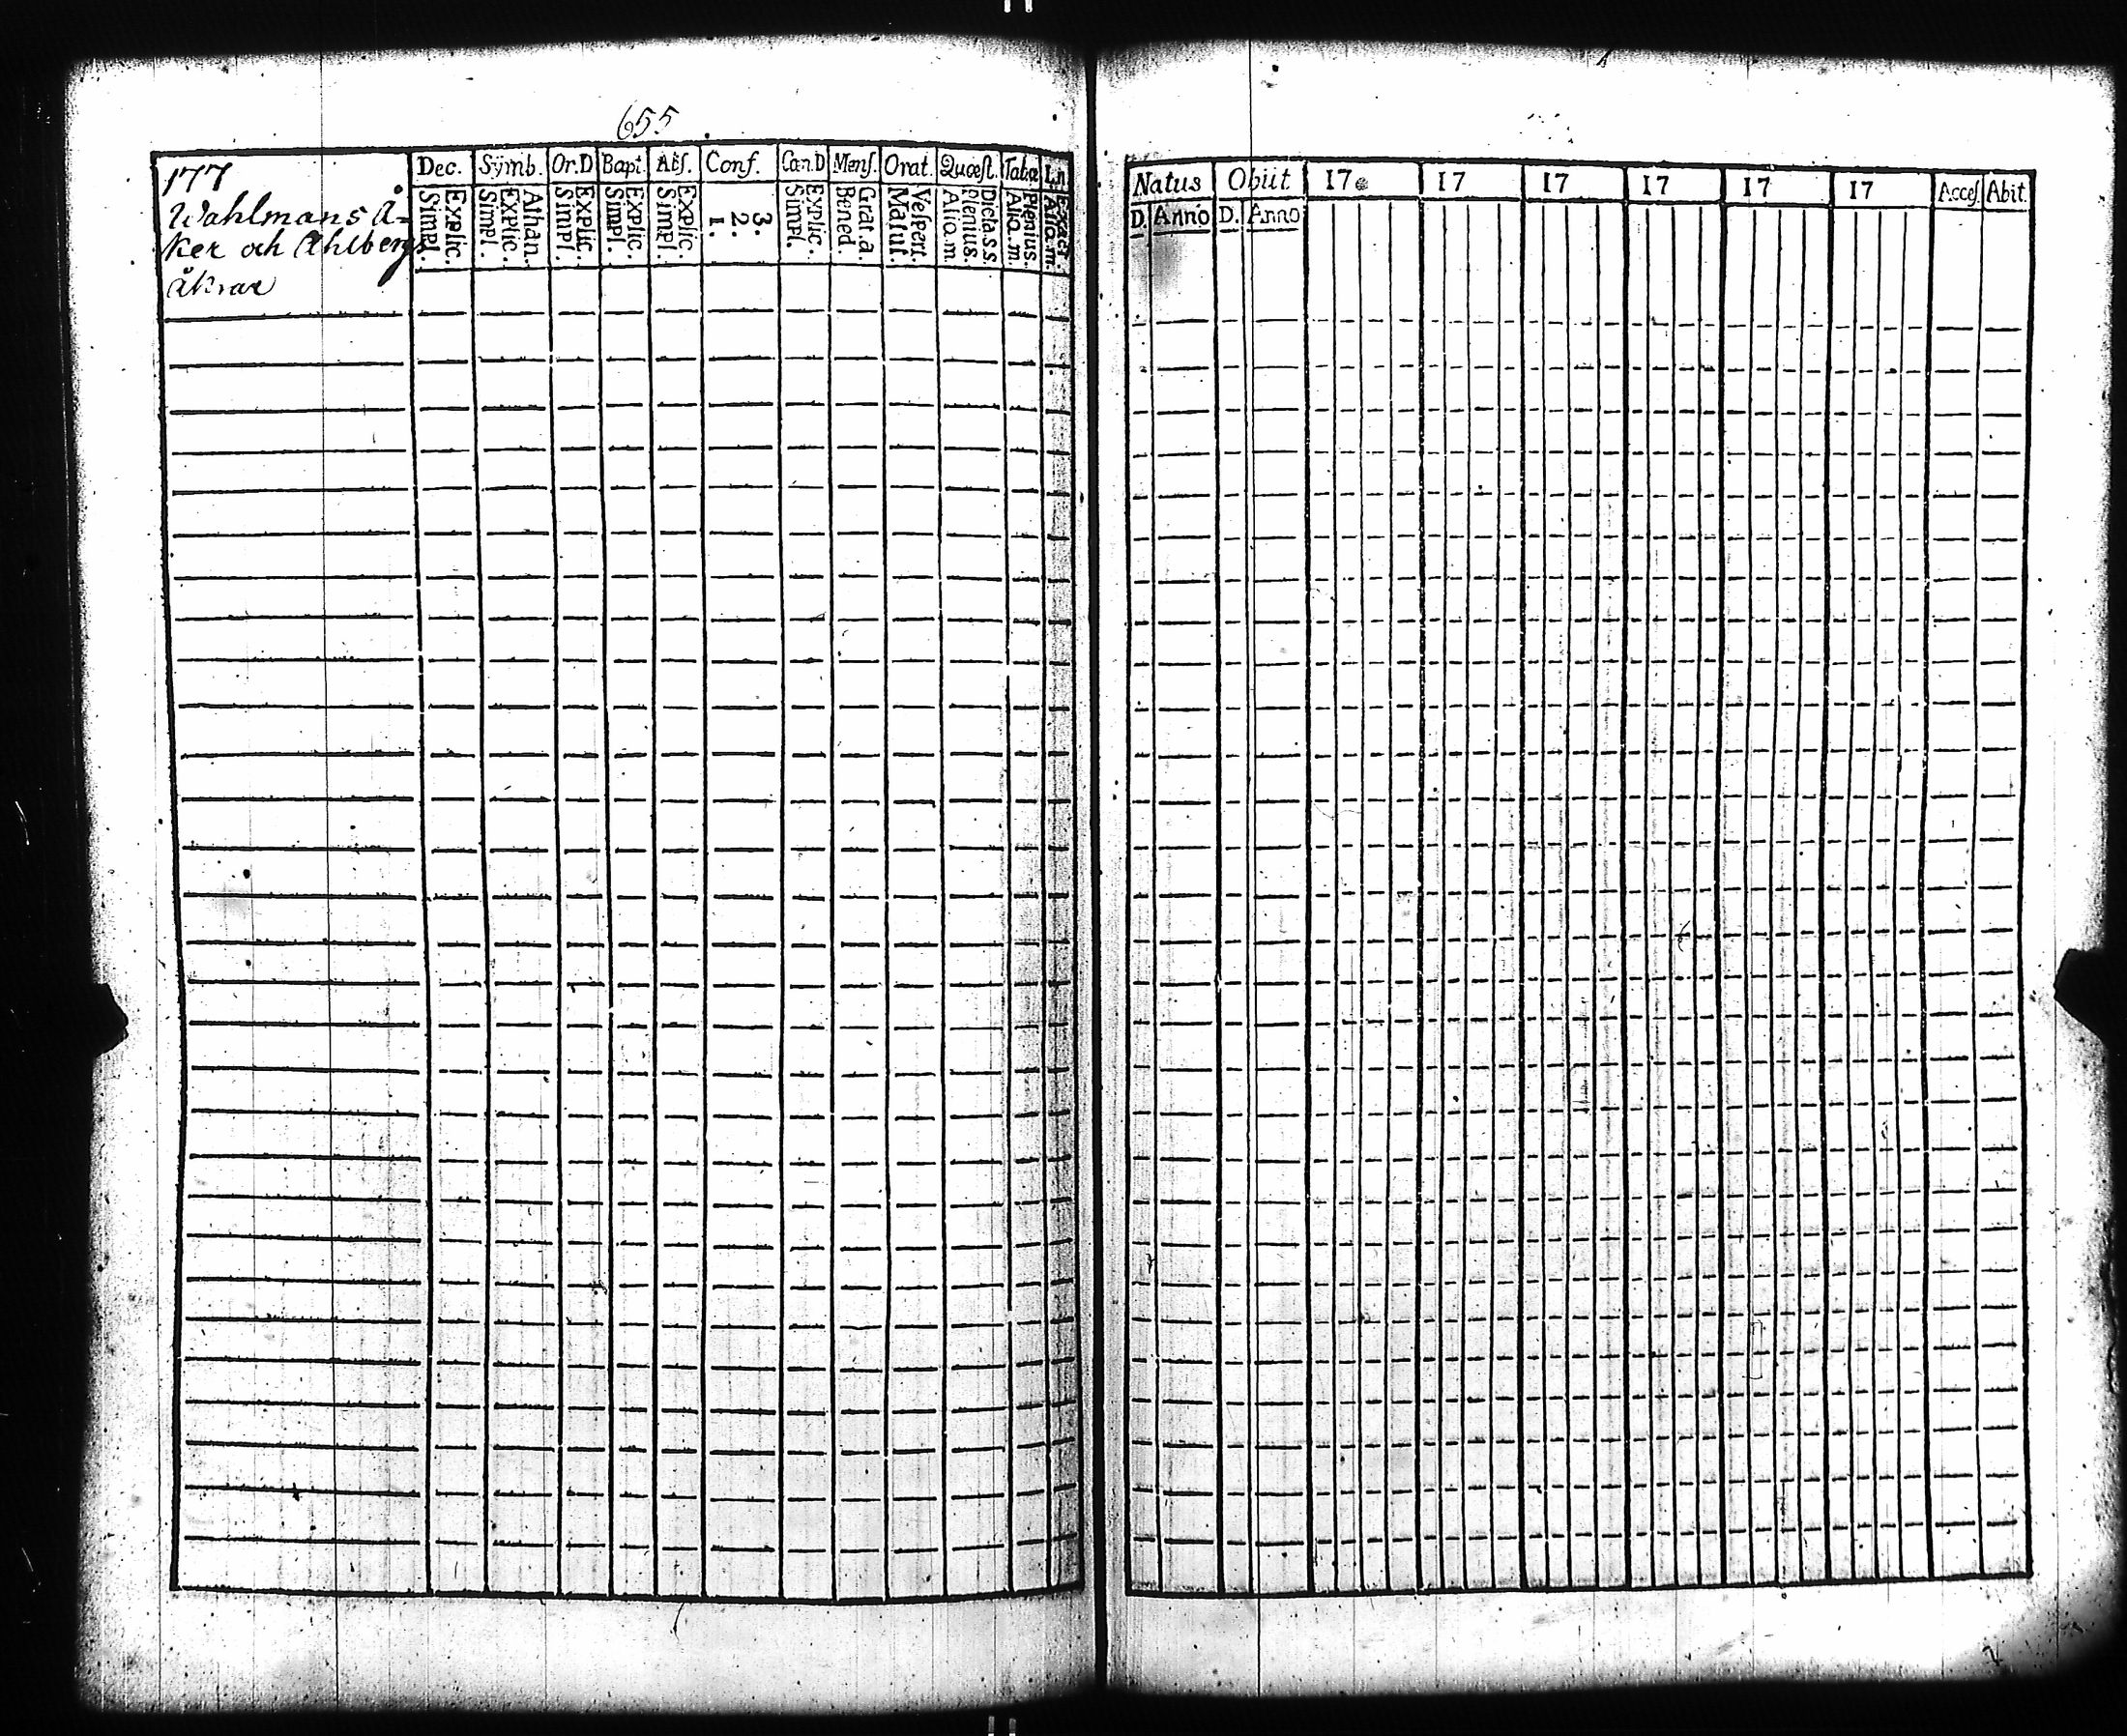 655
177
Wahlmans Å-
ker och Ahlbergs
åkrar
Dec. Symb. Or.D Bapt. Abſ. Conf. Cœn.D Menſ. Orat. Quæſt. Tab.œ
Explic. Simpl. Athan. Explic. Simpl. Explic. Simpl. Explic. Simpl. Explic. Simpl. 3. 2. 1. Explic. Simpl. Grat.a. Bened. Veſpert. Matut. Dicta.s.s. Plenius. Aliq.m. Plenius. Aliq.m. Exact. Aliq.m.
Natus Obiit 17 17 17 17 17 17 Acceſ. Abit.
D. Anno D. Anno